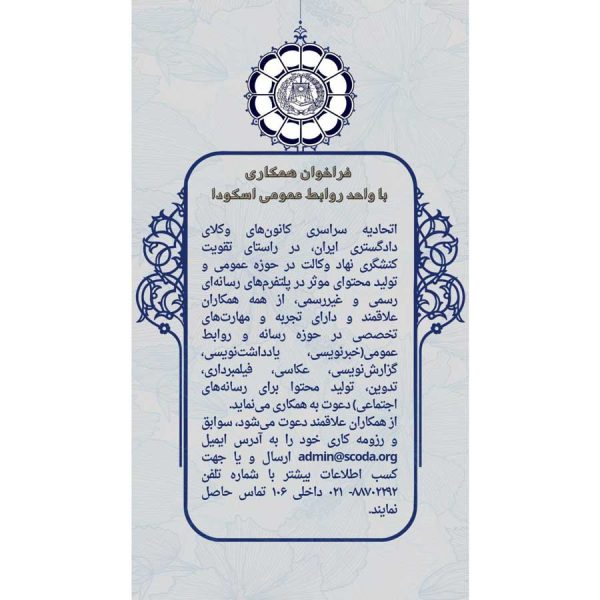 فراخوان همکاری
با واحد روابط عمومی اسکودا
اتحادیه سراسری کانون‌های وکلای
دادگستری ایران، در راستای تقویت
کنشگری نهاد وکالت در حوزه عمومی و
تولید محتوای موثر در پلتفرم‌های رسانه‌ای
رسمی و غیررسمی، از همه همکاران
علاقمند و دارای تجربه و مهارت‌های
تخصصی در حوزه رسانه و روابط
عمومی(خبرنویسی، یادداشت‌نویسی،
گزارش‌نویسی، عکاسی، فیلمبرداری،
تدوین، تولید محتوا برای رسانه‌های
اجتماعی) دعوت به همکاری می‌نماید.
از همکاران علاقمند دعوت می‌شود، سوابق
و رزومه کاری خود را به آدرس ایمیل
admin@scoda.org ارسال و یا جهت
کسب اطلاعات بیشتر با شماره تلفن
۸۸۷۰۲۲۹۲- ۰۲۱ داخلی ۱۰۶ تماس حاصل
نمایند.